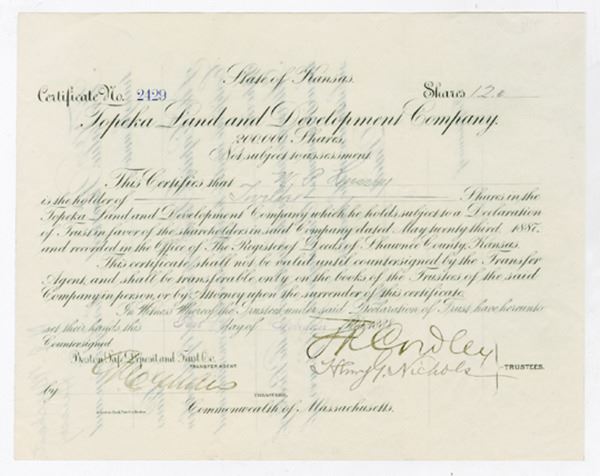 State of Kansas.
Certificate No. 2429 Shares 120
Topeka Land and Development Company.
200,000 Shares,
Not subject to assessment
This Certifies that
is the holder of Shares in the
Topeka Land and Development Company which he holds subject to a Declaration
of Trust in favor of the shareholders in said Company dated May twenty third, 1887,
and recorded in the Office of The Register of Deeds of Shawnee County, Kansas.
This certificate shall not be valid until countersigned by the Transfer
Agent, and shall be transferable only on the books of the Trustees of the said
Company in person, or by Attorney upon the surrender of this certificate.
In Witness Whereof the Trustees under said Declaration of Trust have hereunto
set their hands this day of
Countersigned
Boston Safe Deposit and Trust Co.
TRANSFER AGENT
Cordley
Henry G. Nichols
TRUSTEES.
by
TREASURER.
Commonwealth of Massachusetts.